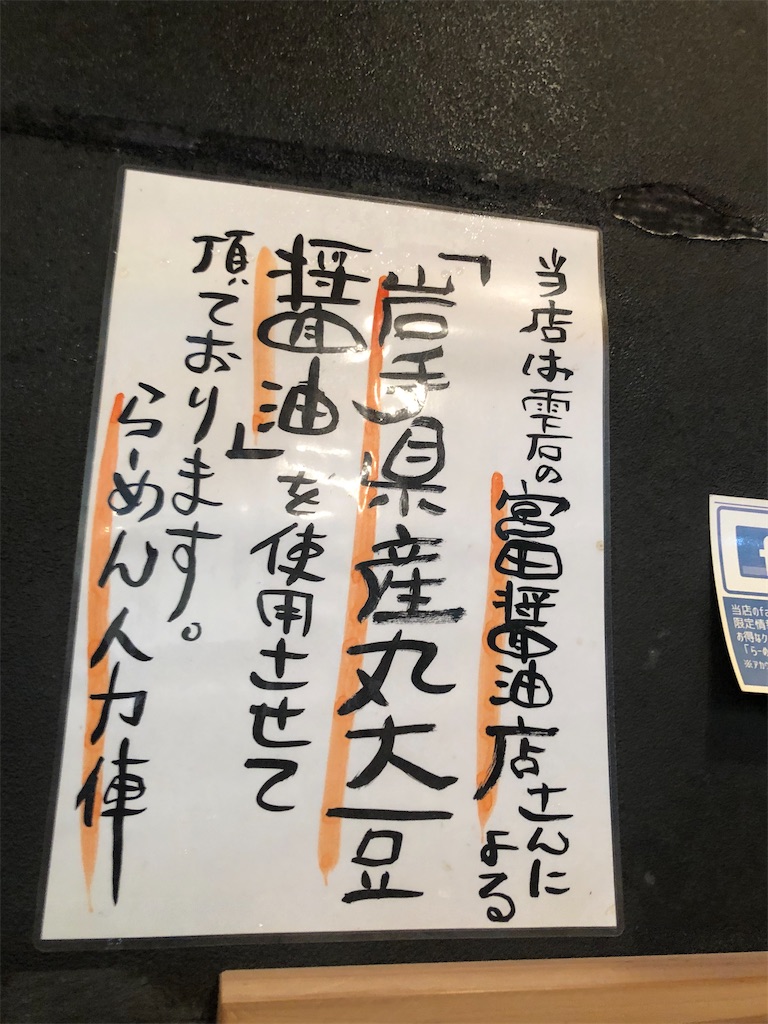 当店は雫石の宮田醤油店さんに
よる
「岩手県産丸大豆
醤油」を使用させて
頂ております。
らーめん人力俥
当店のfa
限定情
お得なク
「らーめ
※アカウ